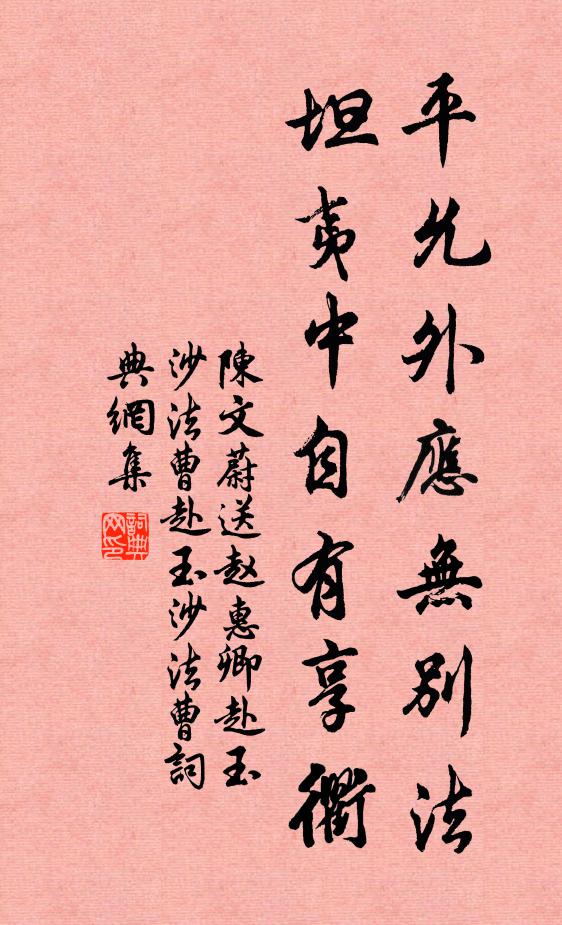 平允外應無別法
坦夷中自有享衢
陳文蔚送赵惠卿赴玉
沙法曹赴玉沙法曹詞
典網集
詞典
网印